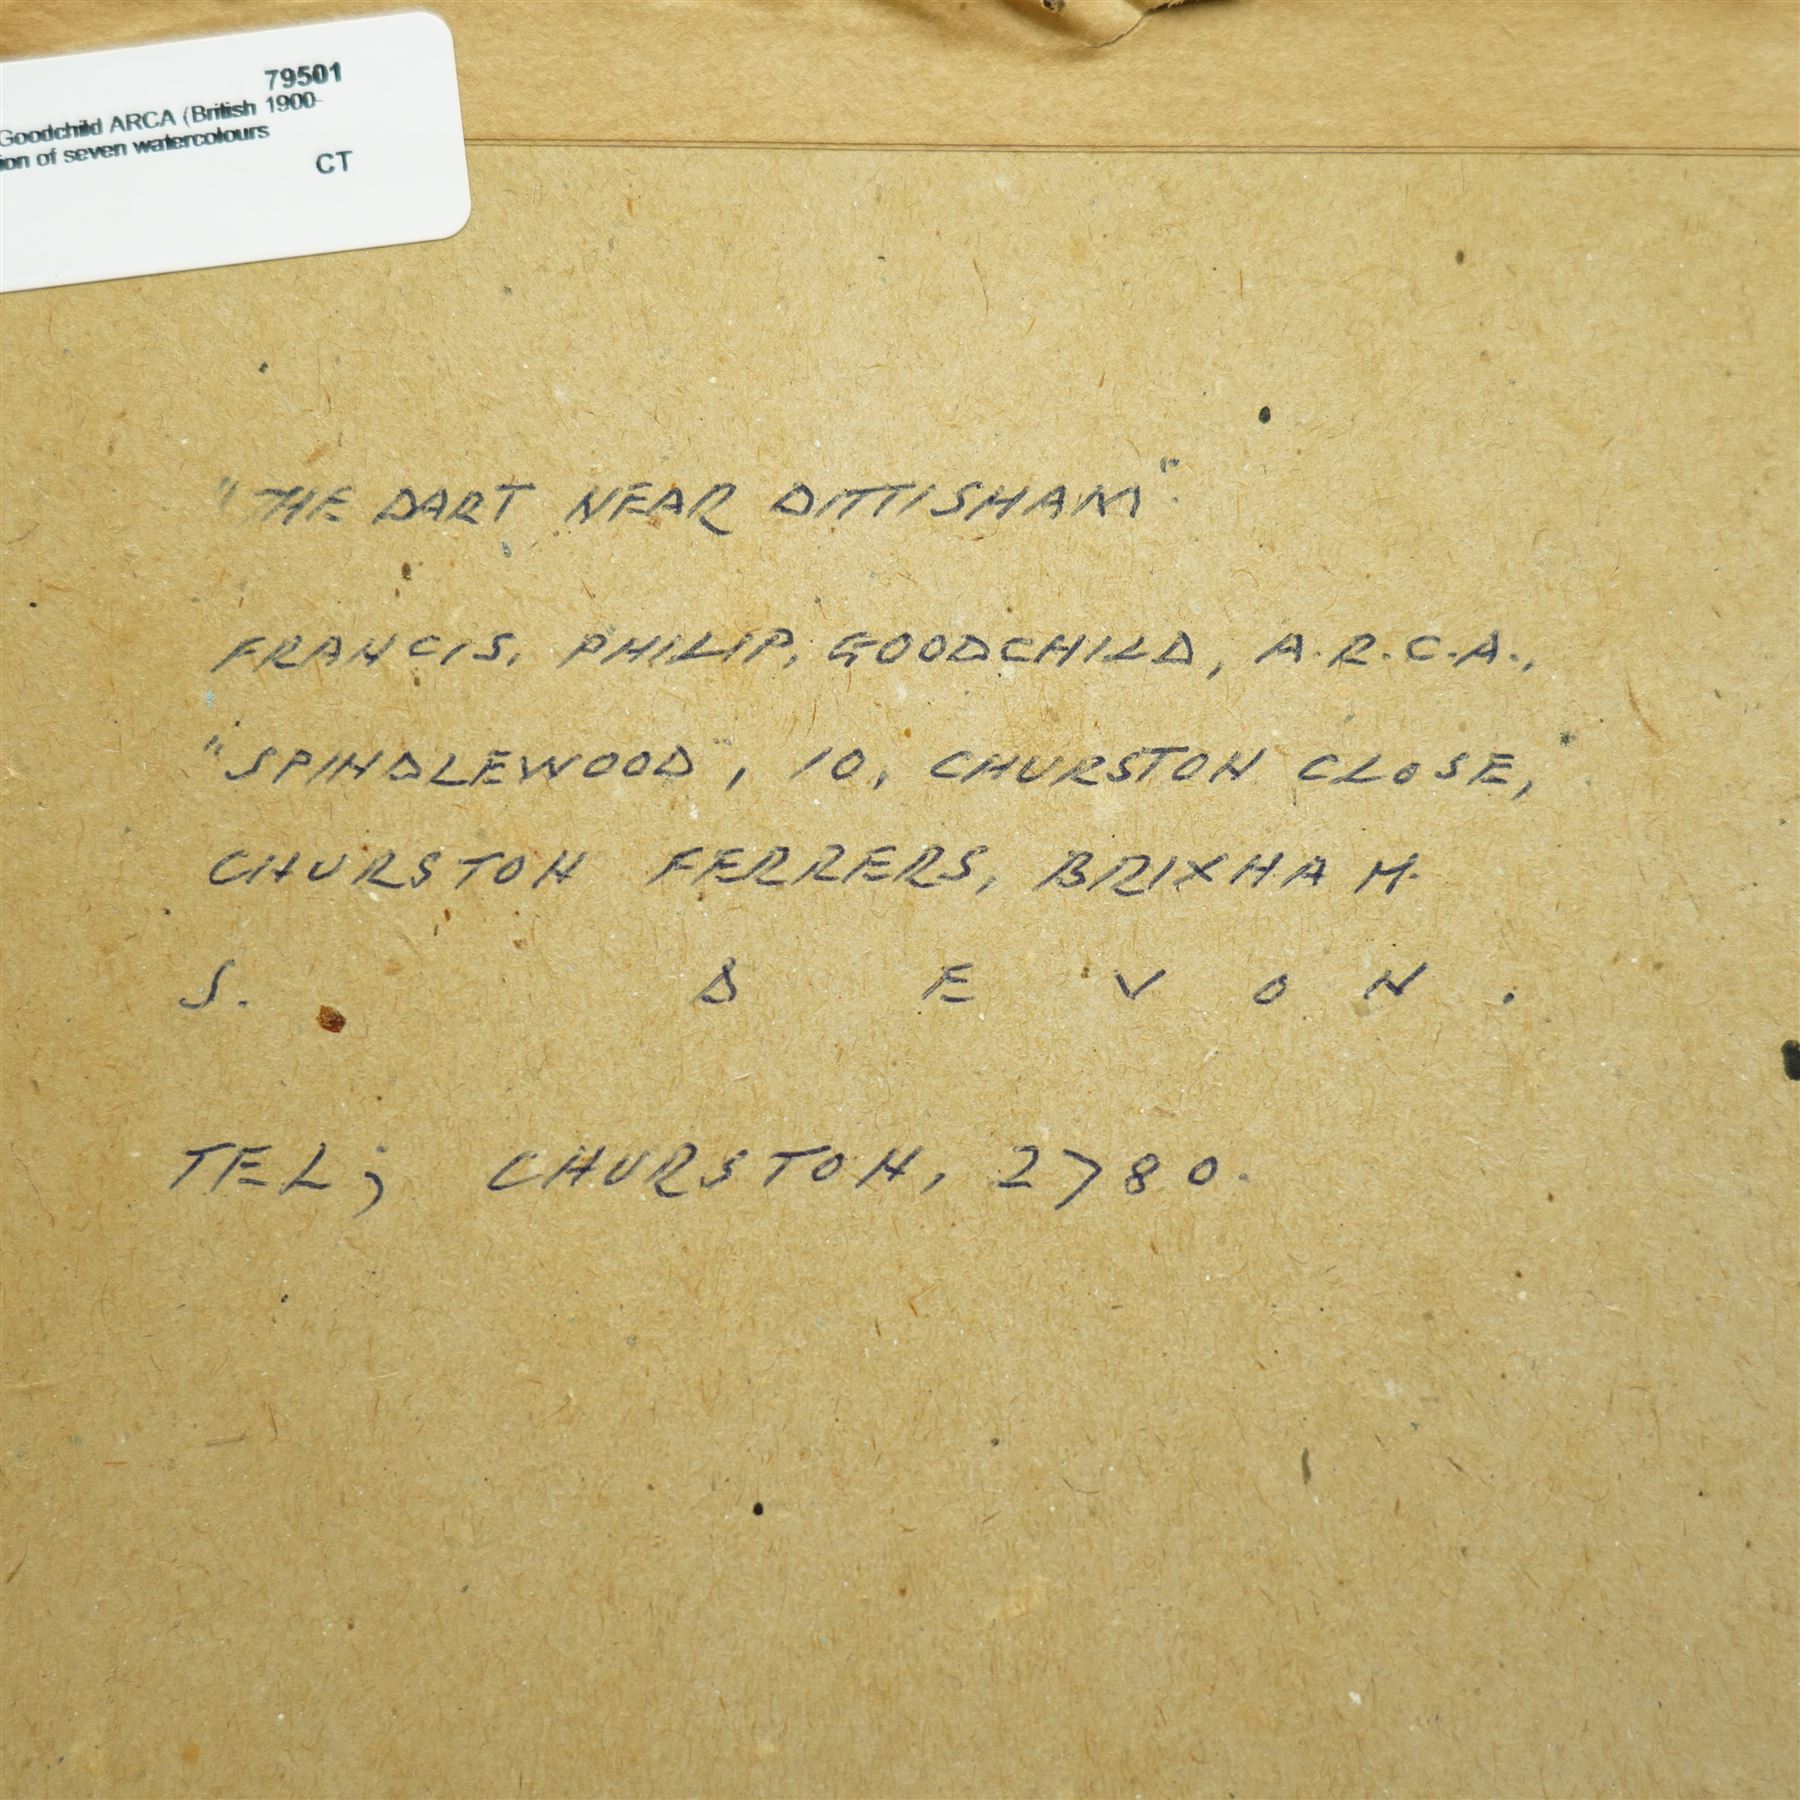 79501
Goodchild ARCA (British 1900-
of seven watercolours
CT
"THE DART NEAR DITTISHAM".
FRANCIS, PHILIP, GOODCHILD, A.R.C.A.,
"SPINDLEWOOD", 10, CHURSTON CLOSE,
CHURSTON FERRERS, BRIXHAM.
S. DEVON.
TEL; CHURSTON, 2780.